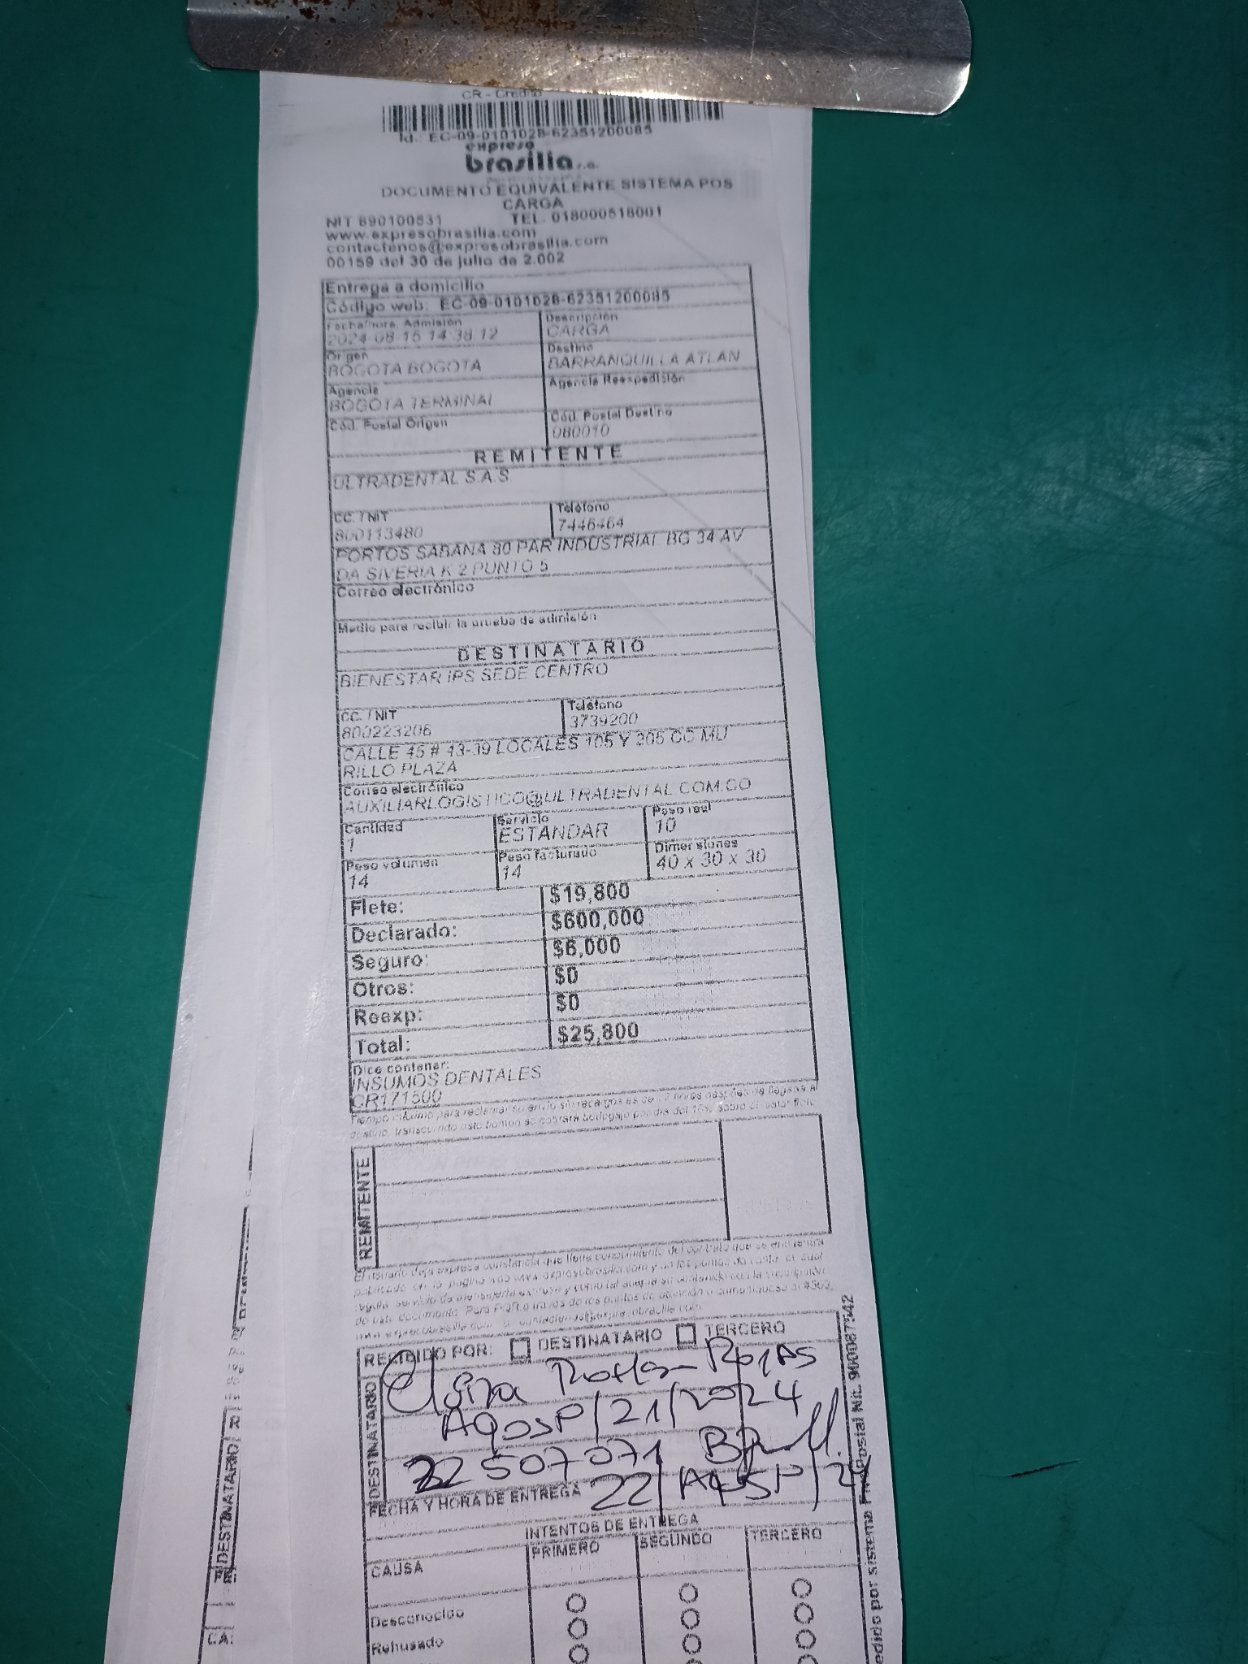 CR - Crédito
Id.: EC-09-0101028-62351200085
expreso
brasilia s.a.
DOCUMENTO EQUIVALENTE SISTEMA POS
CARGA
NIT 890100531 TEL. 018000518001
www.expresobrasilia.com
contactenos@expresobrasilia.com
00159 del 30 de julio de 2.002
Entrega a domicilio
Código web: EC-09-0101028-62351200085
Fecha/hora Admisión Descripción
2024-08-15 14:38:12 CARGA
Origen Destino
BOGOTA BOGOTA BARRANQUILLA ATLAN
Agencia Agencia Reexpedición
BOGOTA TERMINAL
Cód. Postal Origen Cód. Postal Destino
080010
REMITENTE
ULTRADENTAL S.A.S
CC. / NIT Teléfono
800113480 7446464
PORTOS SABANA 80 PAR INDUSTRIAL BG 34 AV
DA SIVERIA K 2 PUNTO 5
Correo electrónico
Medio para recibir la prueba de admisión
DESTINATARIO
BIENESTAR IPS SEDE CENTRO
CC. / NIT Teléfono
800223206 3739200
CALLE 45 # 43-39 LOCALES 105 Y 205 CC MU
RILLO PLAZA
Correo electrónico
AUXILIARLOGISTICO@ULTRADENTAL.COM.CO
Cantidad Servicio Peso real
1 ESTANDAR 10
Peso volumen Peso facturado Dimensiones
14 14 40 x 30 x 30
Flete: $19,800
Declarado: $600,000
Seguro: $6,000
Otros: $0
Reexp: $0
Total: $25,800
Dice contener:
INSUMOS DENTALES
CR171500
REMITENTE
RECIBIDO POR: DESTINATARIO TERCERO
DESTINATARIO
Rojas
Agosp/21/2024
22507071
FECHA Y HORA DE ENTREGA 22/Agosp/2
INTENTOS DE ENTREGA
CAUSA PRIMERO SEGUNDO TERCERO
Desconocido
Rehusado
edido por sistema PivaPostal Nit. 900087542
DESTINATARIO
CA: